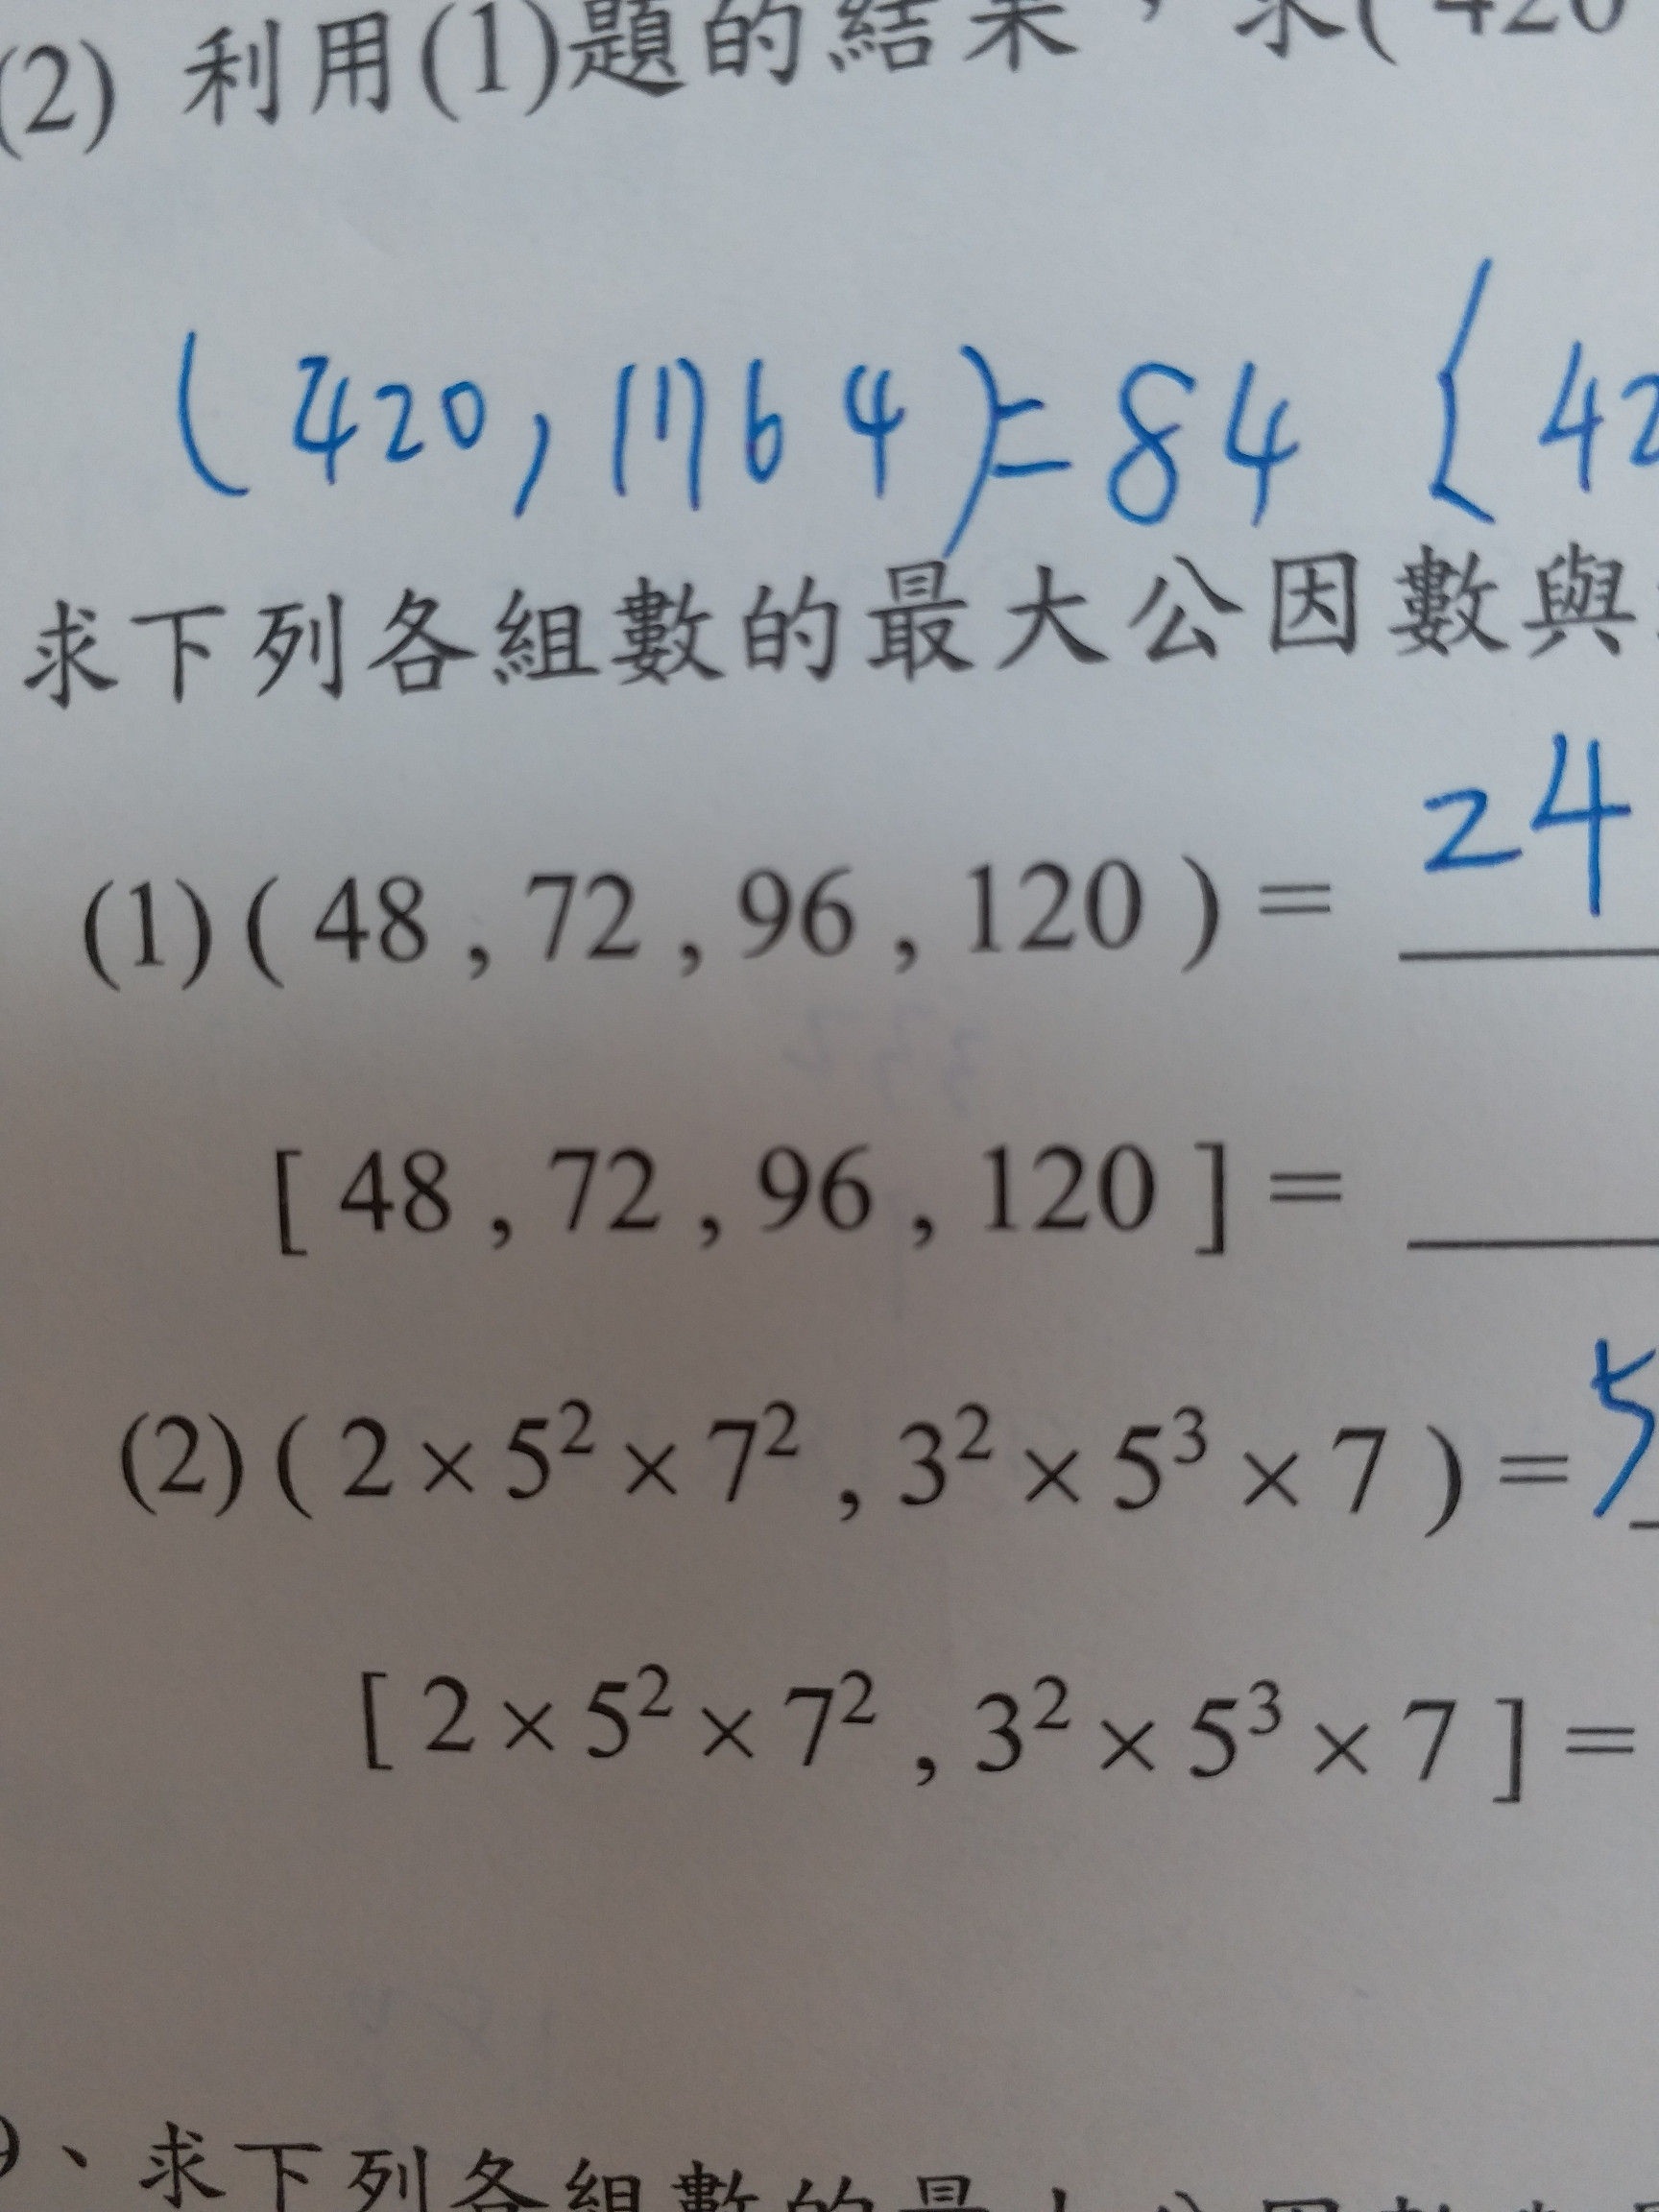 (2) 利用(1)題的結果，求( 420
( 420 , 1764 ) = 84 [ 42
求下列各組數的最大公因數與
(1) ( 48 , 72 , 96 , 120 ) = 24
[ 48 , 72 , 96 , 120 ] =
(2) ( 2 × 5² × 7² , 3² × 5³ × 7 ) = 5
[ 2 × 5² × 7² , 3² × 5³ × 7 ] =
、求下列各組數的最大公因數與